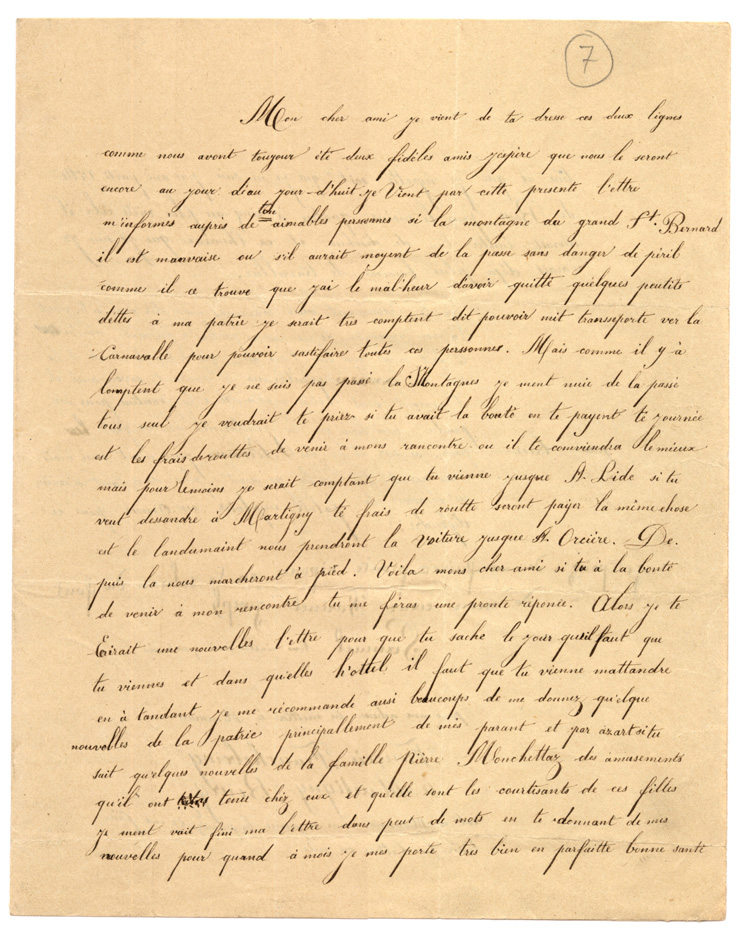 7
Mon cher ami je vient de ta dresse ces deux lignes
comme nous avont toujour été deux fidèles amis j'espère que nous le seront
encore au jour d'au jour-d'huit je Vient par cette presente l'ettre
m'informés auprès de ton aimables personnes si la montagne du grand St. Bernard
il est mauvaise ou s'il aurait moyent de la passe sans danger de péril
comme il ce trouve que j'ai le mal'heur d'avoir quitté quelques peutits
dettes à ma patrie je serait tres comptent dit pouvoir mit transeporté ver la
Carnavalle pour pouvoir sastifaire toutes ces perssonnes. Mais comme il y'à
longtent que je ne suis pas passé la Montagnes je ment nuie de la passé
tous seul je voudrait te priez si tu avait la bonté en te payent te journée
est les frais derouttes de venir à mons rancontre ou il te conviendra lemieux
mais pour lemoins je serait comptant que tu vienne jusque St. Lide si tu
veut dessandre à Martigny té frais de routte seront payer la même chose
est le landumaint nous prendront la voiture jusque St. Orcière. De.
puis la nous marcheront à pièd. Voila mons cher ami si tu à la bonté
de venir à mon rencontre tu me féras une pronte réponce. Alors je te
Eirait une nouvelles l'ettre pour que tu sache le jour qu'ilfaut que
tu viennes et dans qu'elles h'ottel il faut que tu vienne mattandre
en à tandant je me récommande ausi beaucoups de me donnez qu'elque
nouvelles de la patrie principallement de mes parant et par azart situ
sait quelques nouvelles de la famille Pièrre Monchettaz des amusements
qu'il ont tenus chiz eux et qu'elle sont les courtisants de ces filles
je ment vait fini ma l'ettre dans peut de mots en te donnant de mes
nouvelles pour quand à mois je mes porte très bien en parfaitte bonne santé